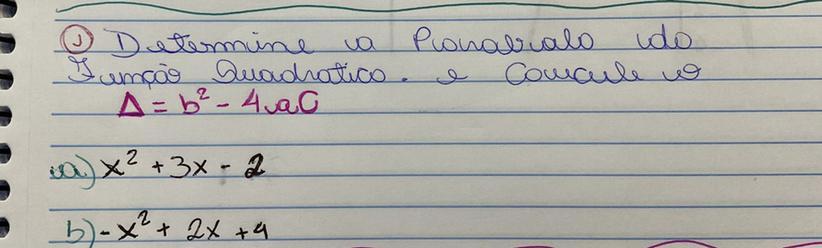 ① Determine a Pronabialo do
Função Quadratico. e Coucule o
Δ = b² - 4.aC
a) x² + 3x - 2
b) - x² + 2x + 4